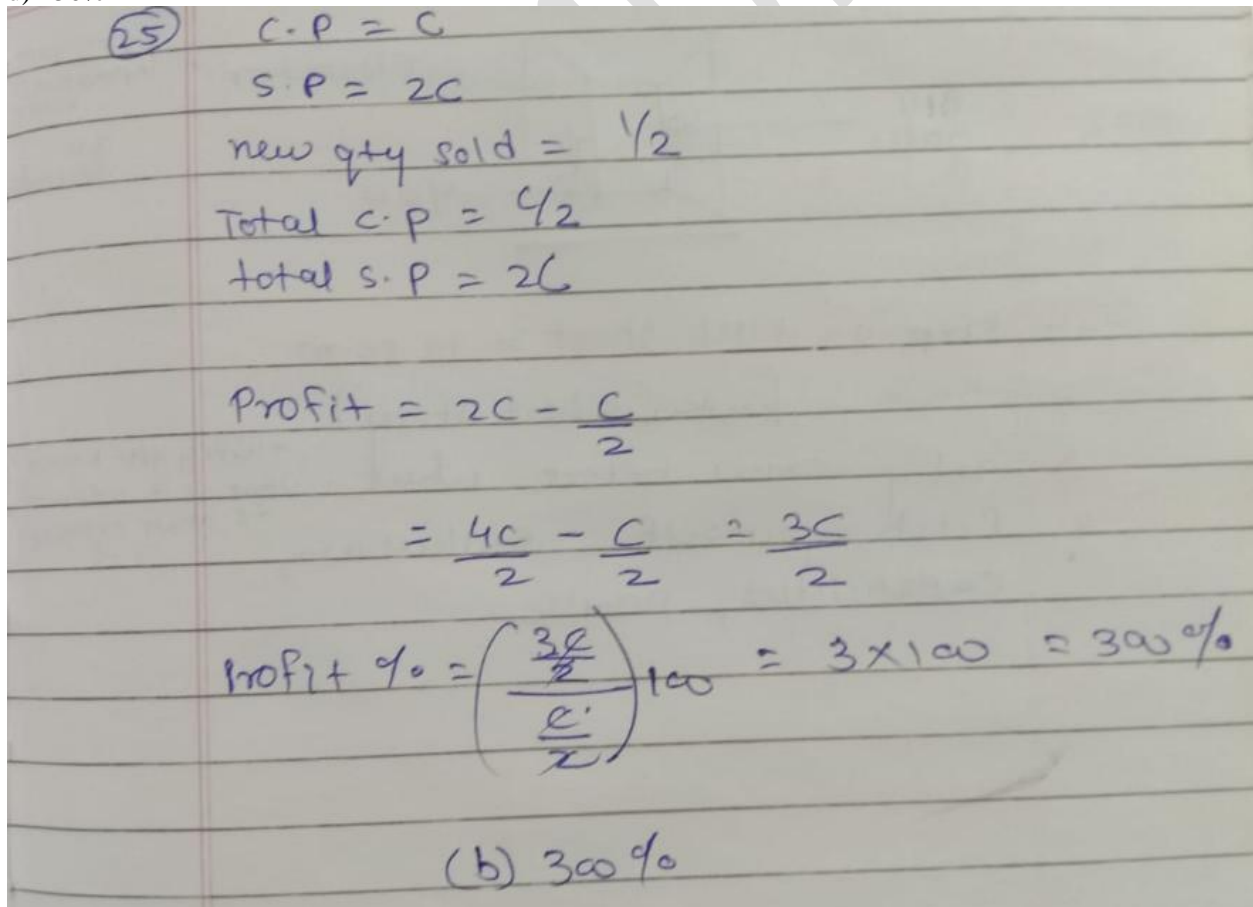 (25) C.P = C
S.P = 2C
new qty sold = 1/2
Total C.P = C/2
total S.P = 2C
Profit = 2C - C/2
= 4C/2 - C/2 = 3C/2
Profit % = ((3C/2)/(C/2))100 = 3×100 = 300%
(b) 300%